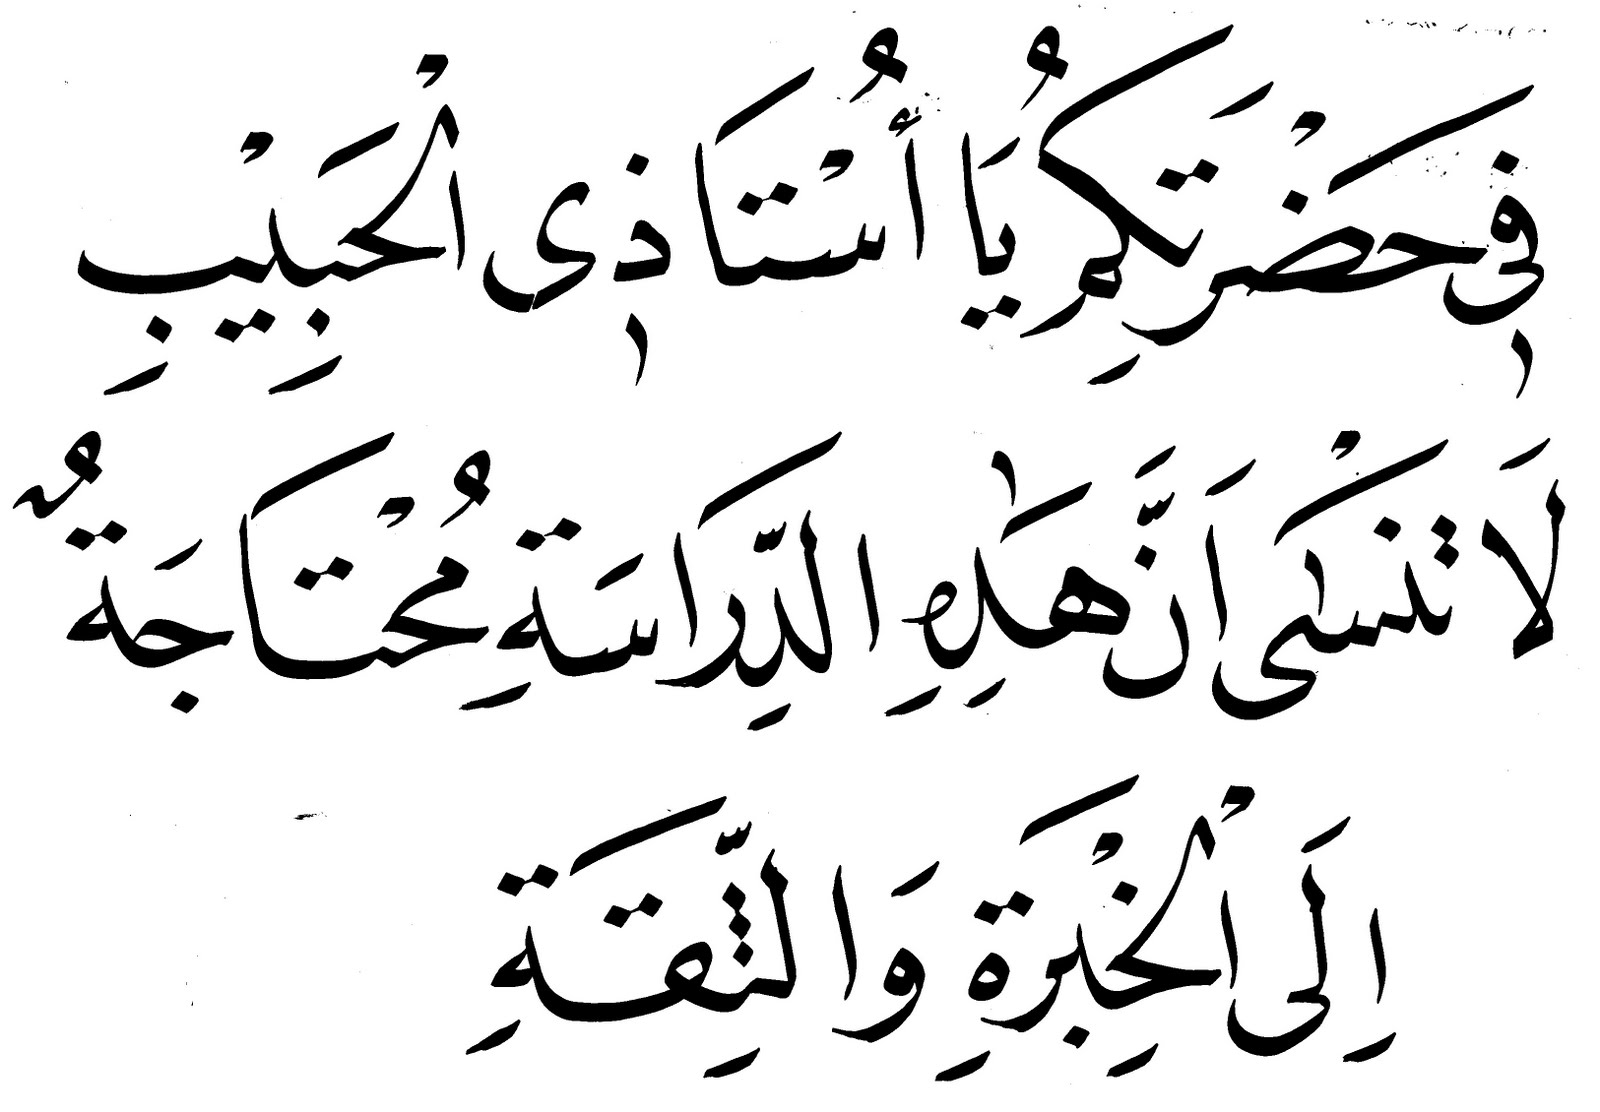 فِى حَضْرَتِكُمْ يَا أُسْتَاذِى الْحَبِيْبِ
لَا تَنْسَى اَنَّ هٰذِهِ الدِّرَاسَةِ مُحْتَاجَةٌ
اِلَى الْخِبْرَةِ وَالثِّقَةِ